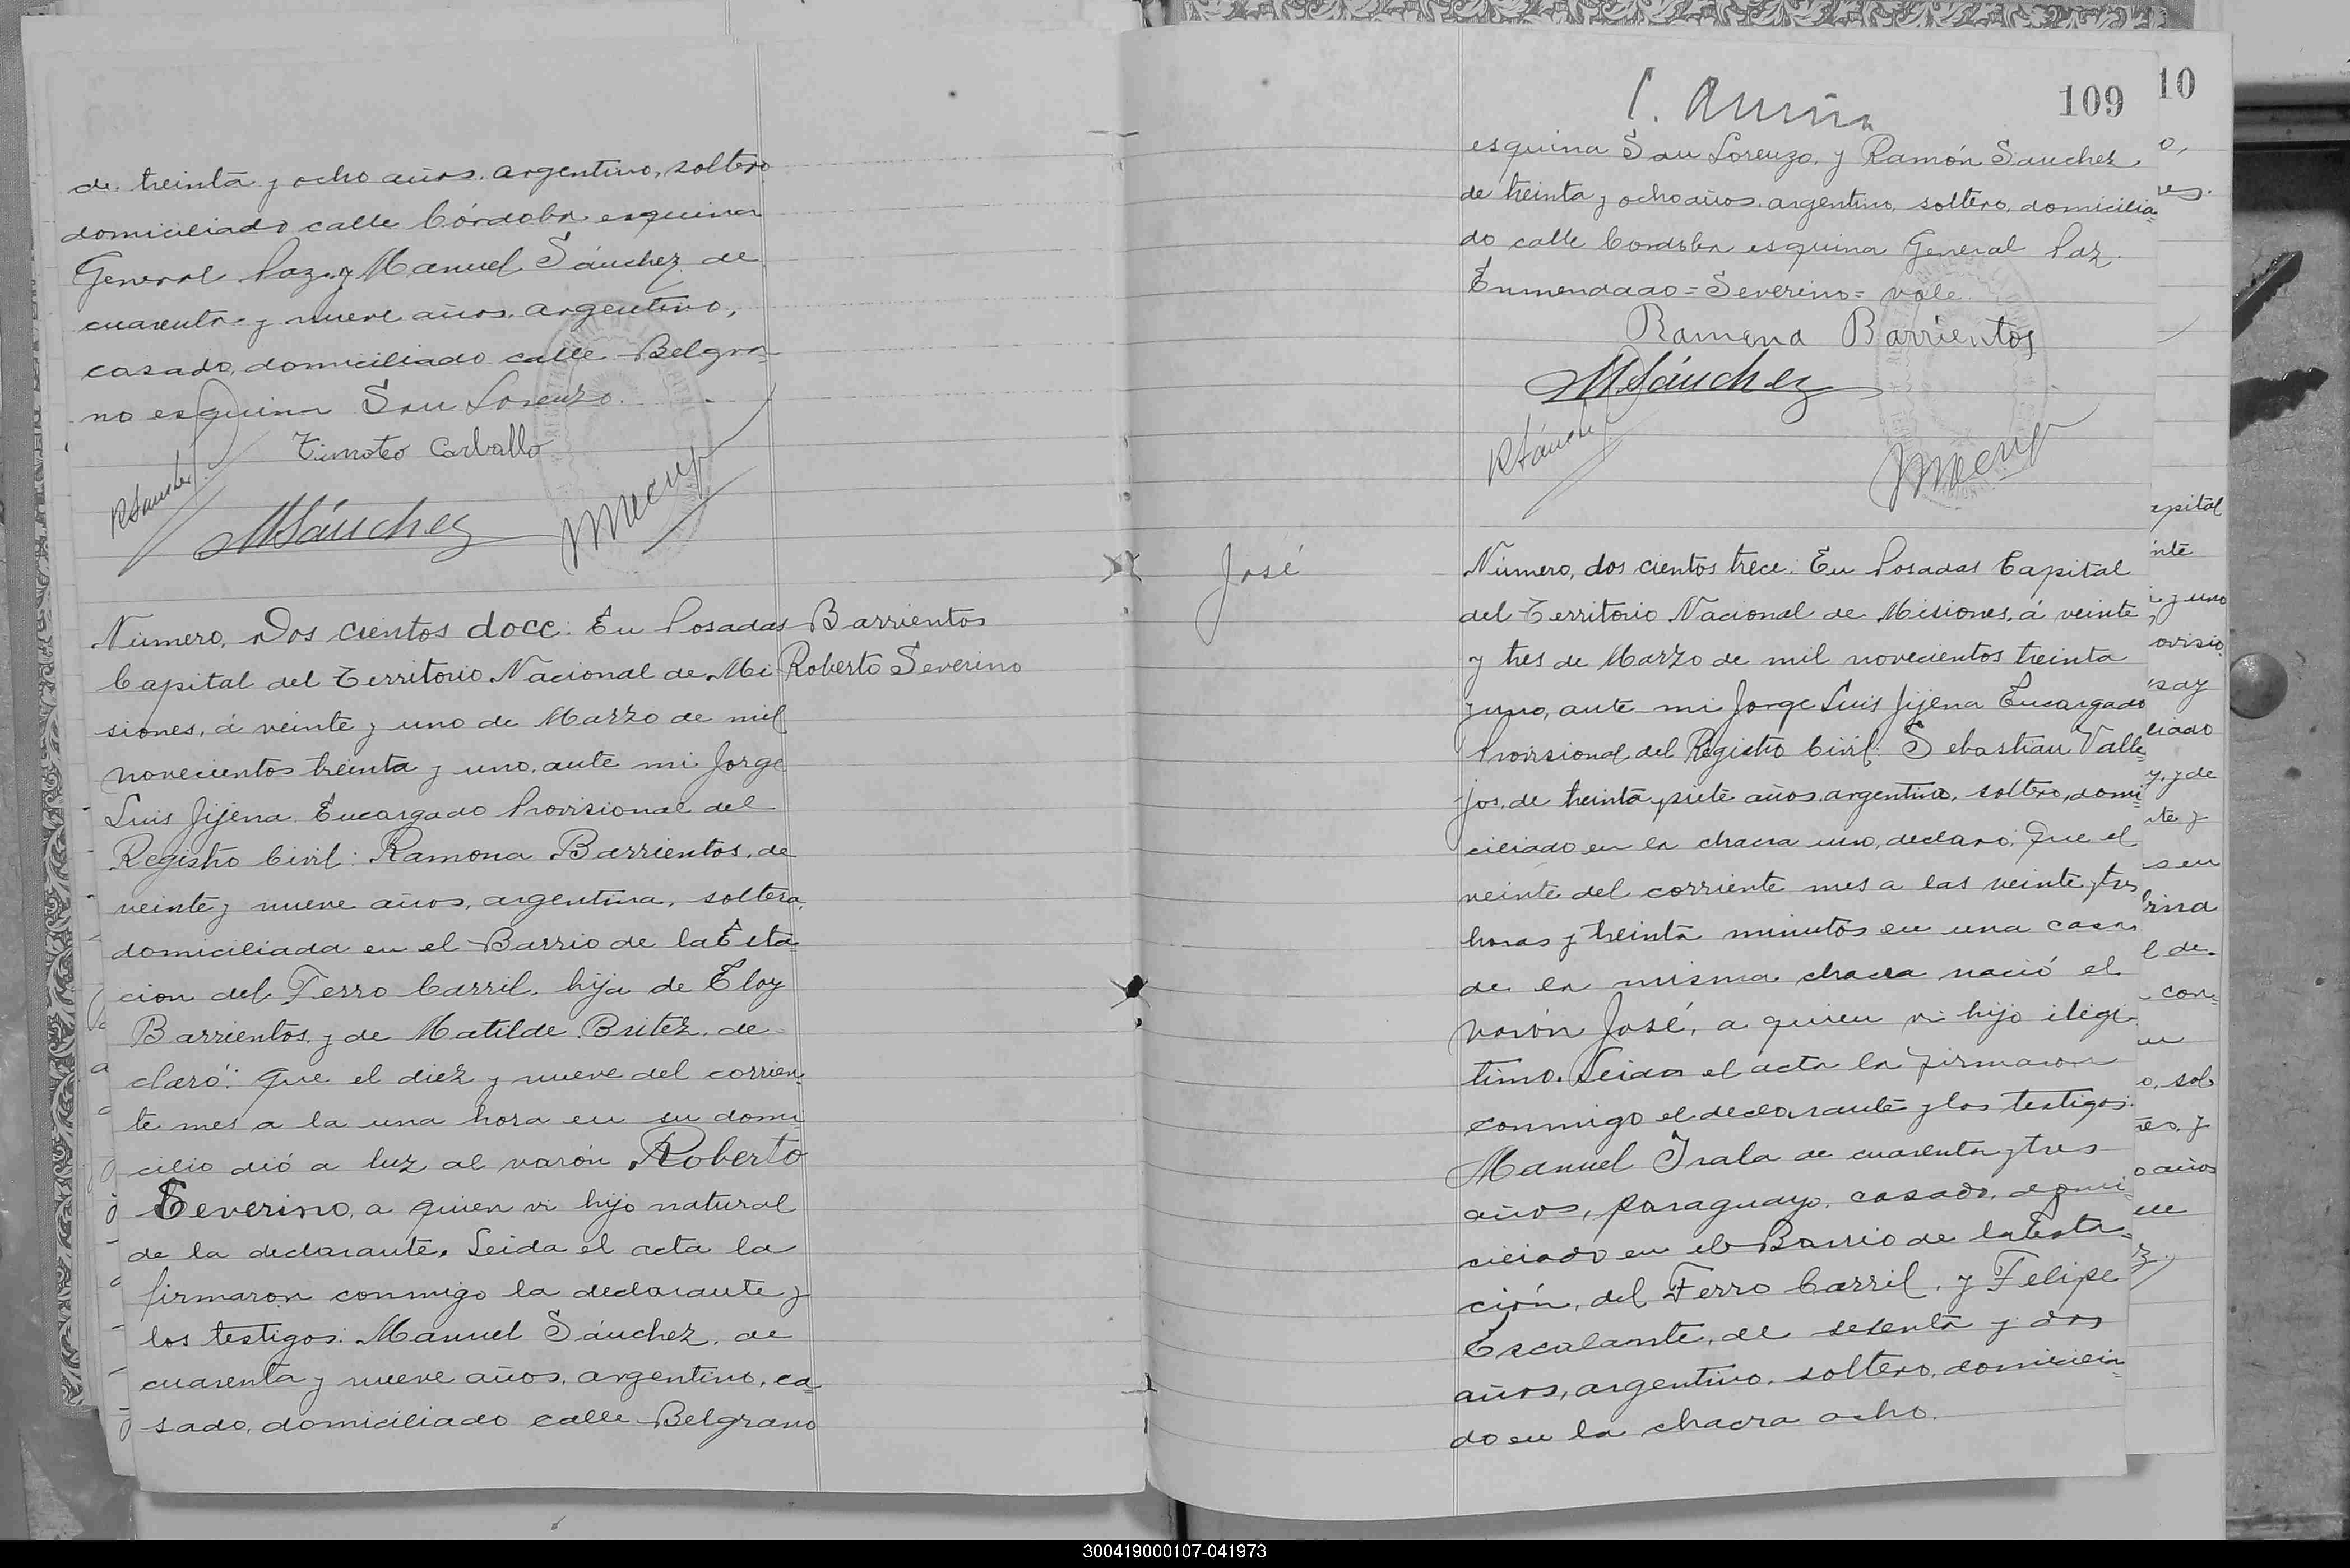 de treinta y ocho años, argentino, soltero
domiciliado calle Córdoba esquina
General Paz y Manuel Sánchez de
cuarenta y nueve años, argentino,
casado, domiciliado calle Belgra=
no esquina San Lorenzo.
Timoteo Carballo
RSanchez
MSánchez
Número, Dos cientos doce: En Posadas
Capital del Territorio Nacional de Mi
siones, á veinte y uno de Marzo de mil
novecientos treinta y uno, ante mi Jorge
Luis Jijena Encargado Provisional del
Registro Civil: Ramona Barrientos, de
veinte y nueve años, argentina, soltera,
domiciliada en el Barrio de la Esta
cion del Ferro Carril, hija de Eloy
Barrientos y de Matilde Britez, de
claró: Que el diez y nueve del corrien
te mes a la una hora en su domi
cilio dió a luz al varón Roberto
Severino, a quien vi hijo natural
de la declarante. Leida el acta la
firmaron conmigo la declarante y
los testigos: Manuel Sánchez, de
cuarenta y nueve años, argentino, ca=
sado, domiciliado calle Belgrano
Barrientos
Roberto Severino
109
10
esquina San Lorenzo, y Ramón Sanchez,
de treinta y ocho años, argentino, soltero, domicilia=
do calle Cordoba esquina General Paz.
Enmendado=Severino=vale
Ramona Barrientos
MSánchez
RSánchez
José
Número, dos cientos trece: En Posadas Capital
del Territorio Nacional de Misiones, á veinte
y tres de Marzo de mil novecientos treinta
y uno, ante mi Jorge Luis Jijena Encargado
Provisional del Registro Civil: Sebastian Valle=
jos, de treinta y siete años, argentino, soltero, domi=
ciliado en la chacra uno, declaro: Que el
veinte del corriente mes a las veinte y tres
horas y treinta minutos en una casa
de la misma chacra nació el
varón José, a quien vi hijo ilegi
timo. Leida el acta la firmaron
conmigo el declarante y los testigos:
Manuel Irala de cuarenta y tres
años, paraguayo, casado, domi=
ciliado en el Barrio de la Esta=
ción, del Ferro Carril, y Felipe
Escalante, de sesenta y dos
años, argentino, soltero, domicilia=
do en la chacra ocho.
300419000107-041973